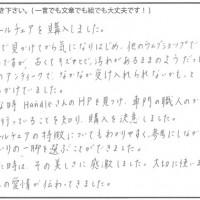 き下さい。(一言でも文章でも絵でも大丈夫です!)
ールチェアを購入しました。
で見かけてから気になりはじめ、他のウェブショップで
が、古くてキズやヒビ、汚れがあるままのようだった
のアンティークで、なかなか受け入れられないかもして
かけていました。
な時 HandleさんのHPを見つけ、専門の職人のか
行っていることを知り、購入を決意しました。
ールチェアの特徴についてもわかりやすく、参考にしなが
りの一脚を選ぶことができました。
た時は、その美しさに感激しました。大切に使いま
の愛情が伝わってきました。